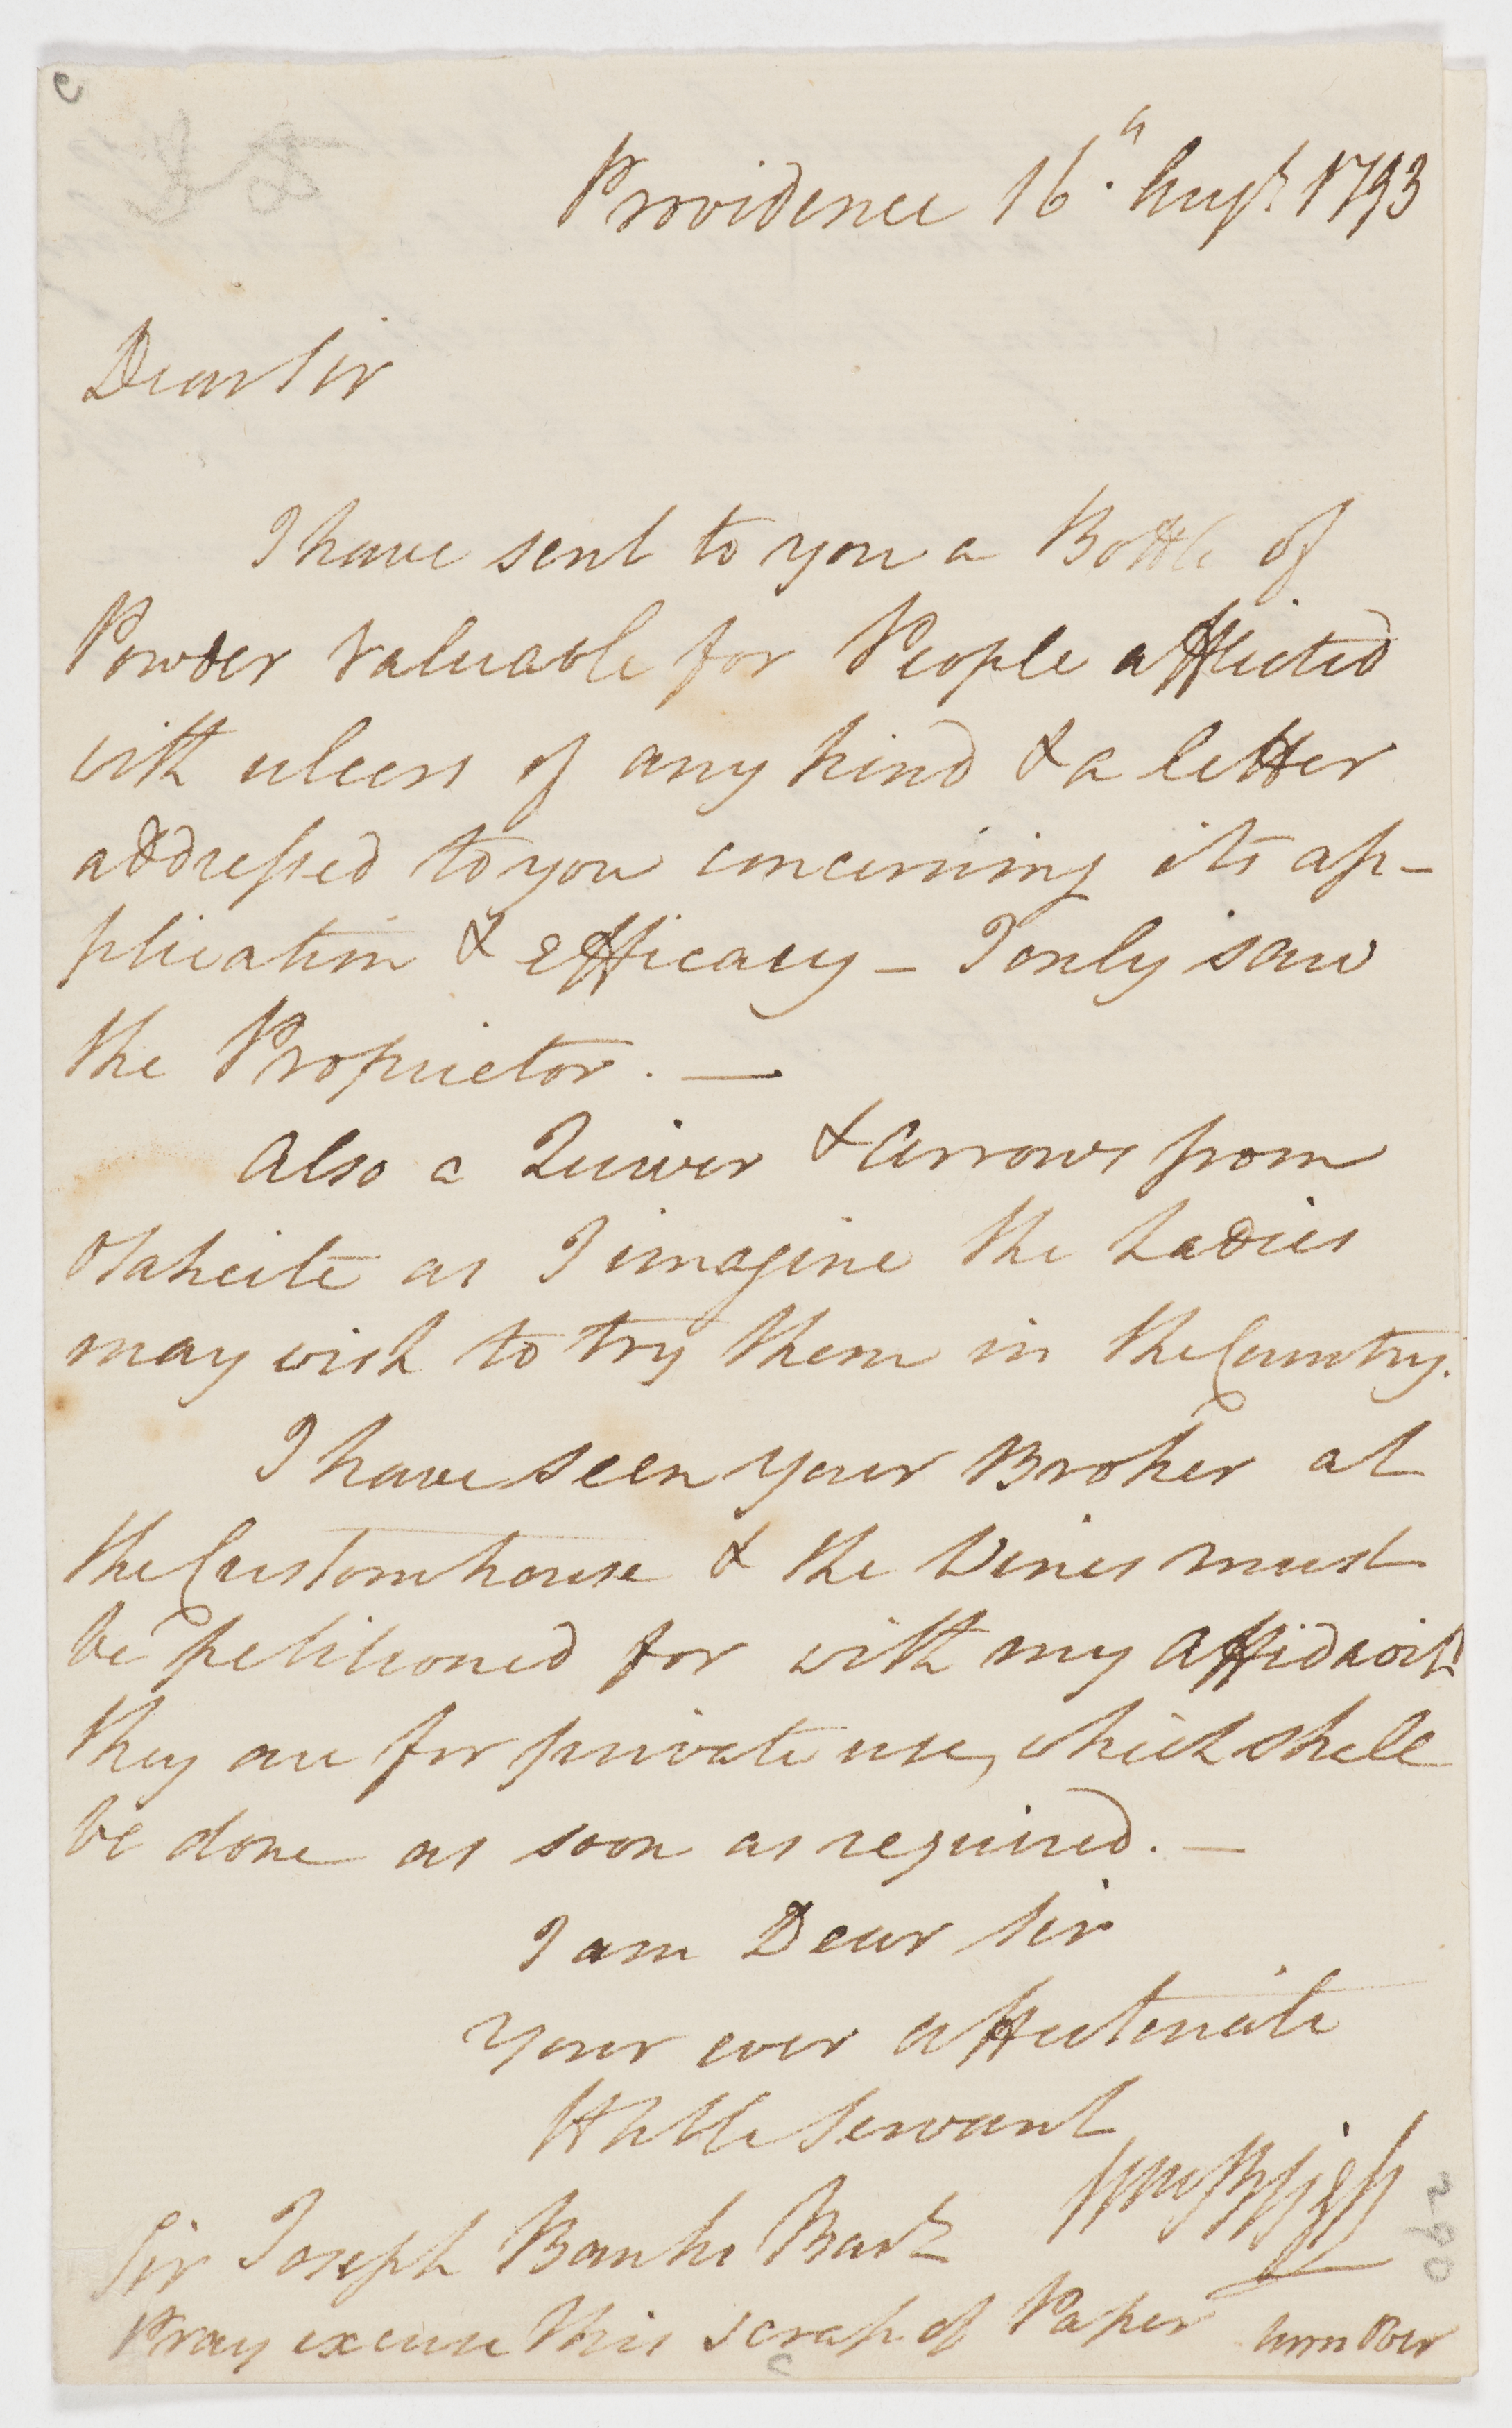 Providence 16th Augt. 1793
Dear Sir
I have sent to you a Bottle of
Powder valuable for People afflicted
with ulcers of any kind & a letter
addressed to you concerning its ap-
plication & efficacy - I only saw
the Proprietor. —
Also a Quiver & Arrows from
Otaheite as I imagine the Ladies
may wish to try them in the Country.
I have seen your Broker at
the Customhouse & the Wines must
be petitioned for with my affidavit
they are for private use, which shall
be done as soon as required. —
I am Dear Sir
your ever affectionate
Hble Servant
Wm Bligh
Sir Joseph Banks Bart
Pray excuse this scrap of Paper turn over
290